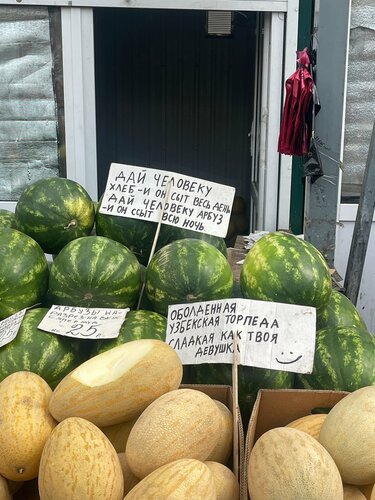 ДАЙ ЧЕЛОВЕКУ
ХЛЕБ - И ОН СЫТ ВЕСЬ ДЕНЬ
ДАЙ ЧЕЛОВЕКУ АРБУЗ
- И ОН ССЫТ ВСЮ НОЧЬ
ОБОЛДЕННАЯ
УЗБЕКСКАЯ ТОРПЕДА
СЛАДКАЯ КАК ТВОЯ
ДЕВУШКА
АРБУЗЫ-НА-
РАЗРЕЗ-НА ВКУС
25